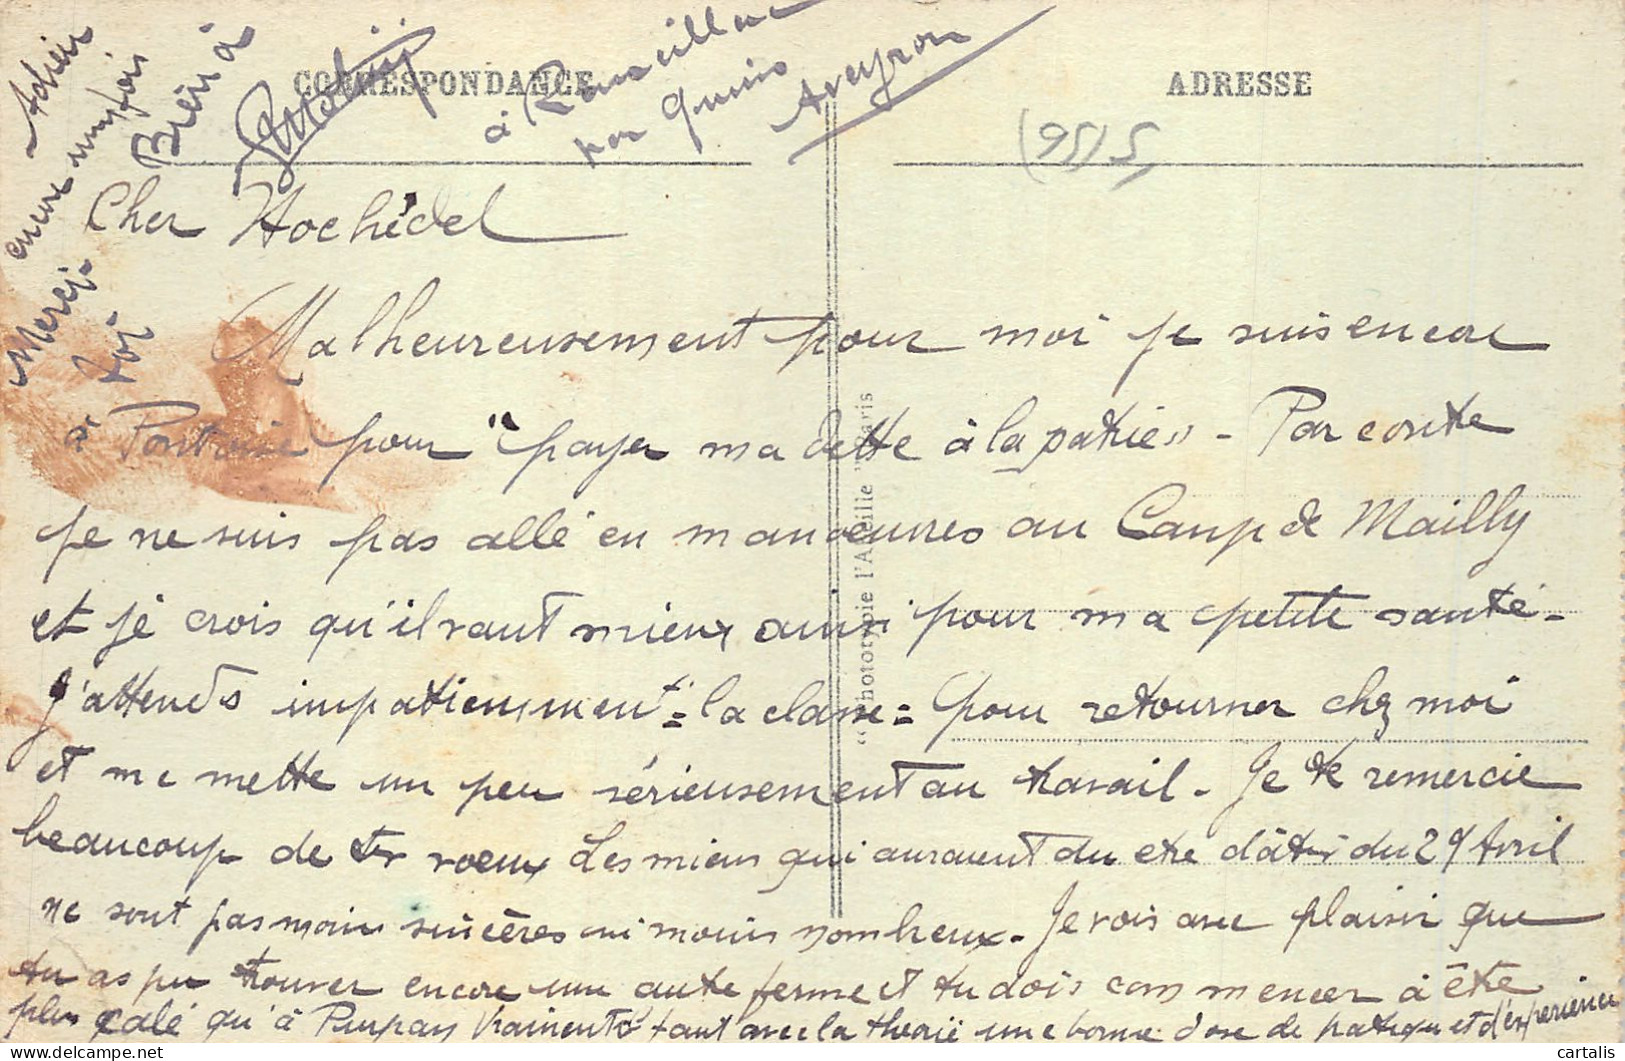 CORRESPONDANCE
ADRESSE
(95) 5
Cher Hochédel
Malheureusement pour moi je suis encore
à Pontoise pour "payer ma dette à la patrie" - Par contre
je ne suis pas allé en manoeuvres au Camp de Mailly
et je crois qu'il vaut mieux ainsi pour ma petite santé -
J'attends impatiemment "la classe" pour retourner chez moi
et me mettre un peu sérieusement au travail - Je te remercie
beaucoup de tes voeux Les miens qui auraient du etre dâtés du 29 Avril
ne sont pas moins sincères ni moins nombreux - Je vois avec plaisir que
tu as pu trouver encore une autre ferme et tu dois commencer à être
plus calé qu'à Purpan Vraiment faut avec la théorie une bonne dose de pratique et d'expérience
Merci
encore une fois
Adieu
Bien à
toi
à
par
Aveyron
"Phototypie l'Abeille" Paris
cartalis